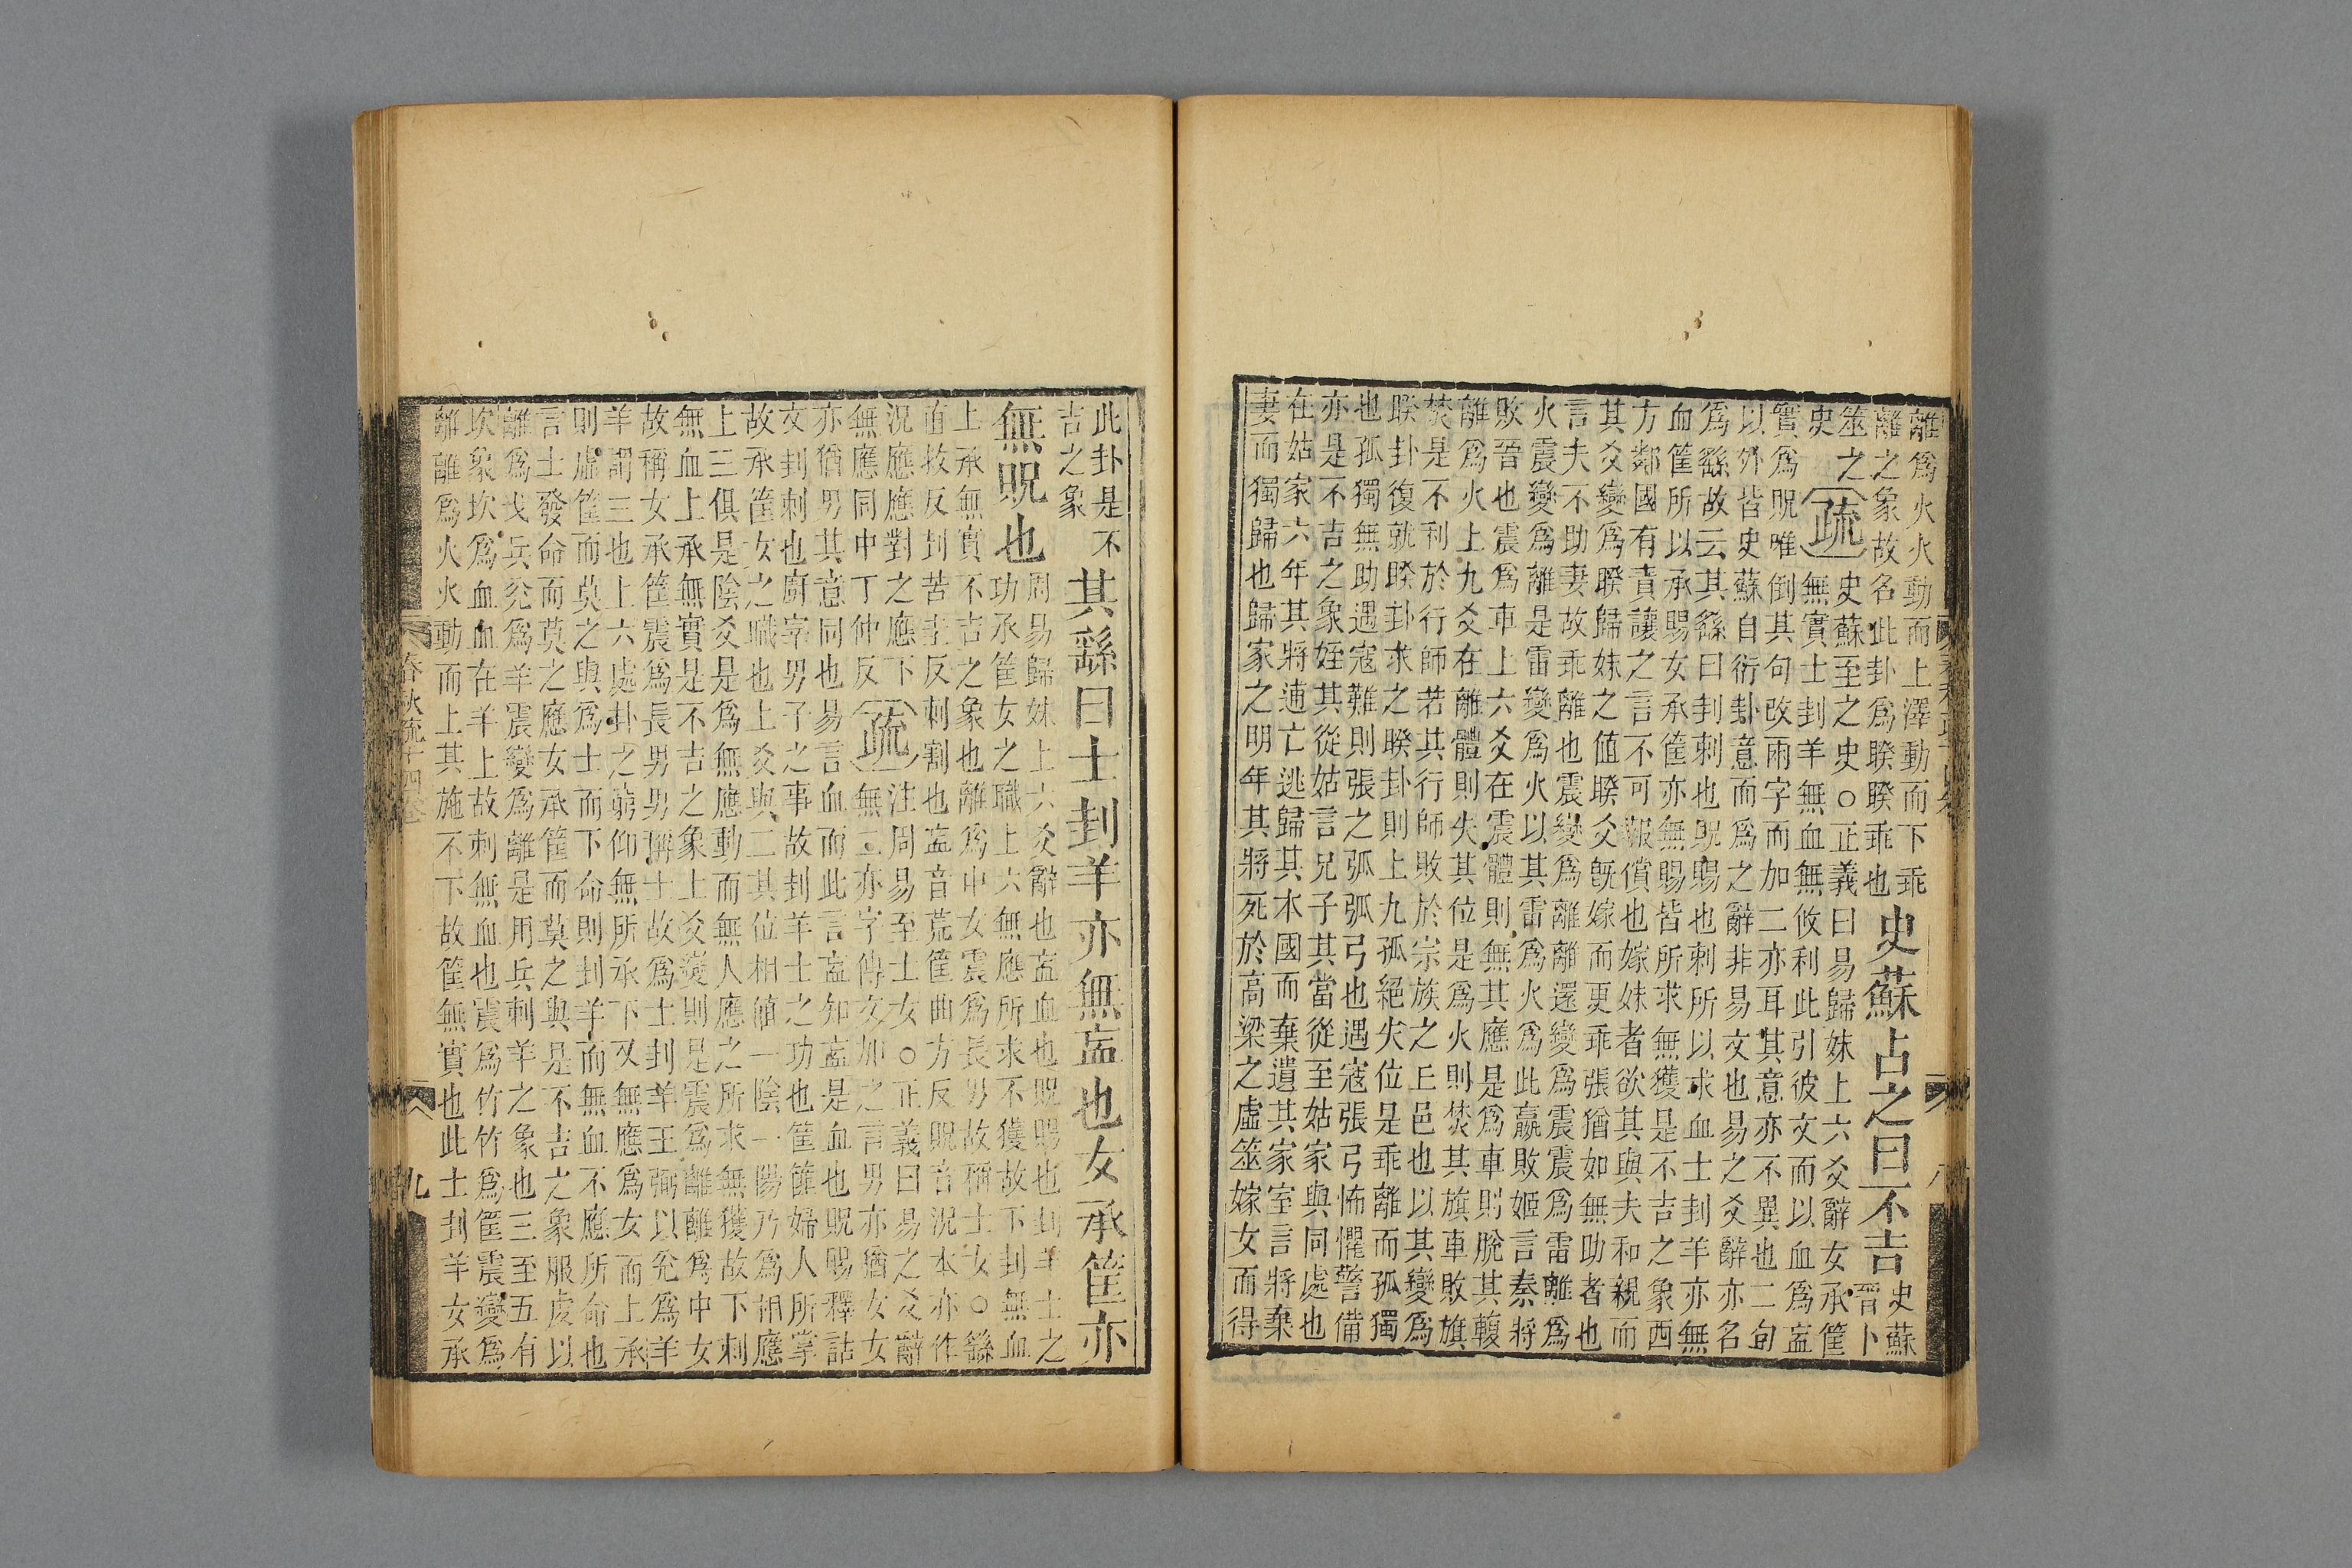 離爲火火動而上澤動而下乖
離之象故名此卦爲睽睽乖也
史蘇占之曰不吉
史蘇
晉卜
筮之
史
疏
史蘇至之史○正義曰易歸妹上六爻辭女承筐
無實士刲羊無血無攸利此引彼文而以血爲衁
實爲貺唯倒其句改兩字而加二亦耳其意亦不異也二句
以外皆史蘇自衍卦意而爲之辭非易文也易之爻辭亦名
爲繇故云其繇曰刲刺也貺賜也刺所以求血士刲羊亦無
血筐所以承賜女承筐亦無賜皆所求無獲是不吉之象西
方鄰國有責讓之言不可報償也嫁妹者欲其與夫和親而
其爻變爲睽歸妹之值睽爻旣嫁而更乖張猶如無助者也
言夫不助妻故乖離也震變爲離離還變爲震震爲雷離爲
火震變爲離是雷變爲火以其雷爲火爲此嬴敗姬言秦將
敗晉也震爲車上六爻在震體則無其應是爲車則脫其輹
離爲火上九爻在離體則失其位是爲火則焚其旗車敗旗
焚是不利於行師若其行師敗於宗族之丘邑也以其變爲
睽卦復就睽卦求之睽卦則上九孤絕失位是乖離而孤獨
也孤獨無助遇寇難則張之弧弧弓也遇寇張弓怖懼警備
亦是不吉之象姪其從姑言兄子其當從至姑家與同處也
在姑家六年其將逋亡逃歸其本國而棄遺其家室言將棄
妻而獨歸也歸家之明年其將死於高梁之虛筮嫁女而得
此卦是不
吉之象
其繇曰士刲羊亦無衁也女承筐亦
無貺也
周易歸妹上六爻辭也衁血也貺賜也刲羊士之
功承筐女之職上六無應所求不獲故下刲無血
上承無實不吉之象也離爲中女震爲長男故稱士女○繇
直救反刲苦圭反刺割也衁音荒筐曲方反貺音況本亦作
況應應對之應下
無應同中丁仲反
疏
注周易至士女○正義曰易之爻辭
無二亦字傳文加之言男亦猶女女
亦猶男其意同也易言血而此言衁知衁是血也貺賜釋詁
文刲刺也廚宰男子之事故刲羊士之功也筐篚婦人所掌
故承筐女之職也上爻與二其位相值一陰一陽乃爲相應
上三俱是陰爻是爲無應動而無人應之所求無獲故下刺
無血上承無實是不吉之象上爻變則是震爲離離爲中女
故稱女承筐震爲長男男稱士故爲士刲羊王弼以兌爲羊
羊謂三也上六處卦之窮仰無所承下又無應爲女而上承
則虛筐而莫之與爲士而下命則刲羊而無血不應所命也
言士發命而莫之應女承筐而莫之與是不吉之象服虔以
離爲戈兵兌爲羊震變爲離是用兵刺羊之象也三至五有
坎象坎爲血血在羊上故刺無血也震爲竹竹爲筐震變爲
離離爲火火動而上其施不下故筐無實也此士刲羊女承
春秋疏十四卷
九